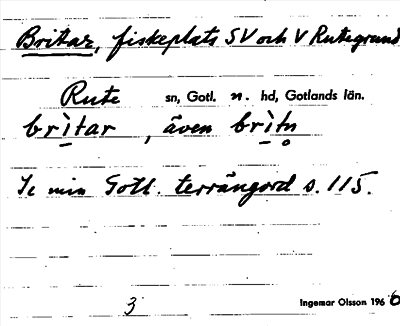 Britar, fiskeplats SV och V Rutegrund
Rute sn, Gotl. n. hd, Gotlands län.
brìtar, även brìtn̥
Se min Gotl. terrängord s. 115.
3 Ingemar Olsson 1966